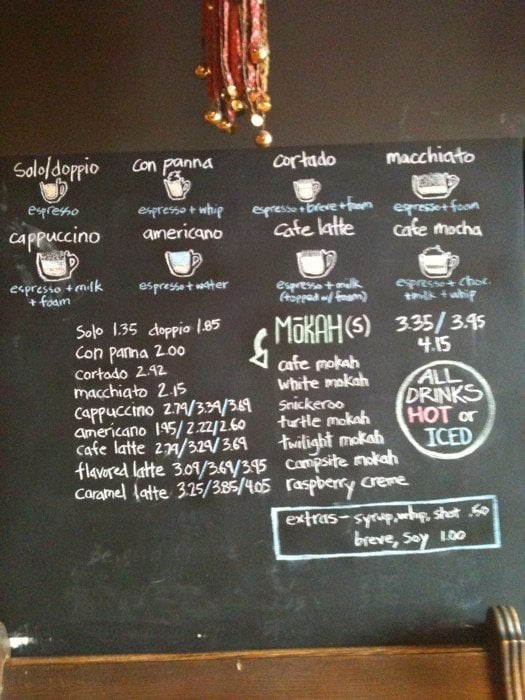 Solo/doppio con panna cortado macchiato
espresso espresso + whip espresso + breve + foam espresso + foam
cappuccino americano cafe latte cafe mocha
espresso + milk + foam espresso + water espresso + milk (topped w/ foam) espresso + choc. + milk + whip
Solo 1.35 doppio 1.85
con panna 2.00
cortado 2.92
macchiato 2.15
cappuccino 2.79/3.39/3.69
americano 1.95/2.22/2.60
cafe latte 2.79/3.29/3.69
flavored latte 3.09/3.69/3.95
caramel latte 3.25/3.85/4.05
MōKAH(s) 3.35/3.95
4.15
cafe mokah
white mokah
snickeroo
turtle mokah
twilight mokah
campsite mokah
raspberry creme
ALL
DRINKS
HOT or
ICED
extras - syrup, whip, shot .50
breve, soy 1.00